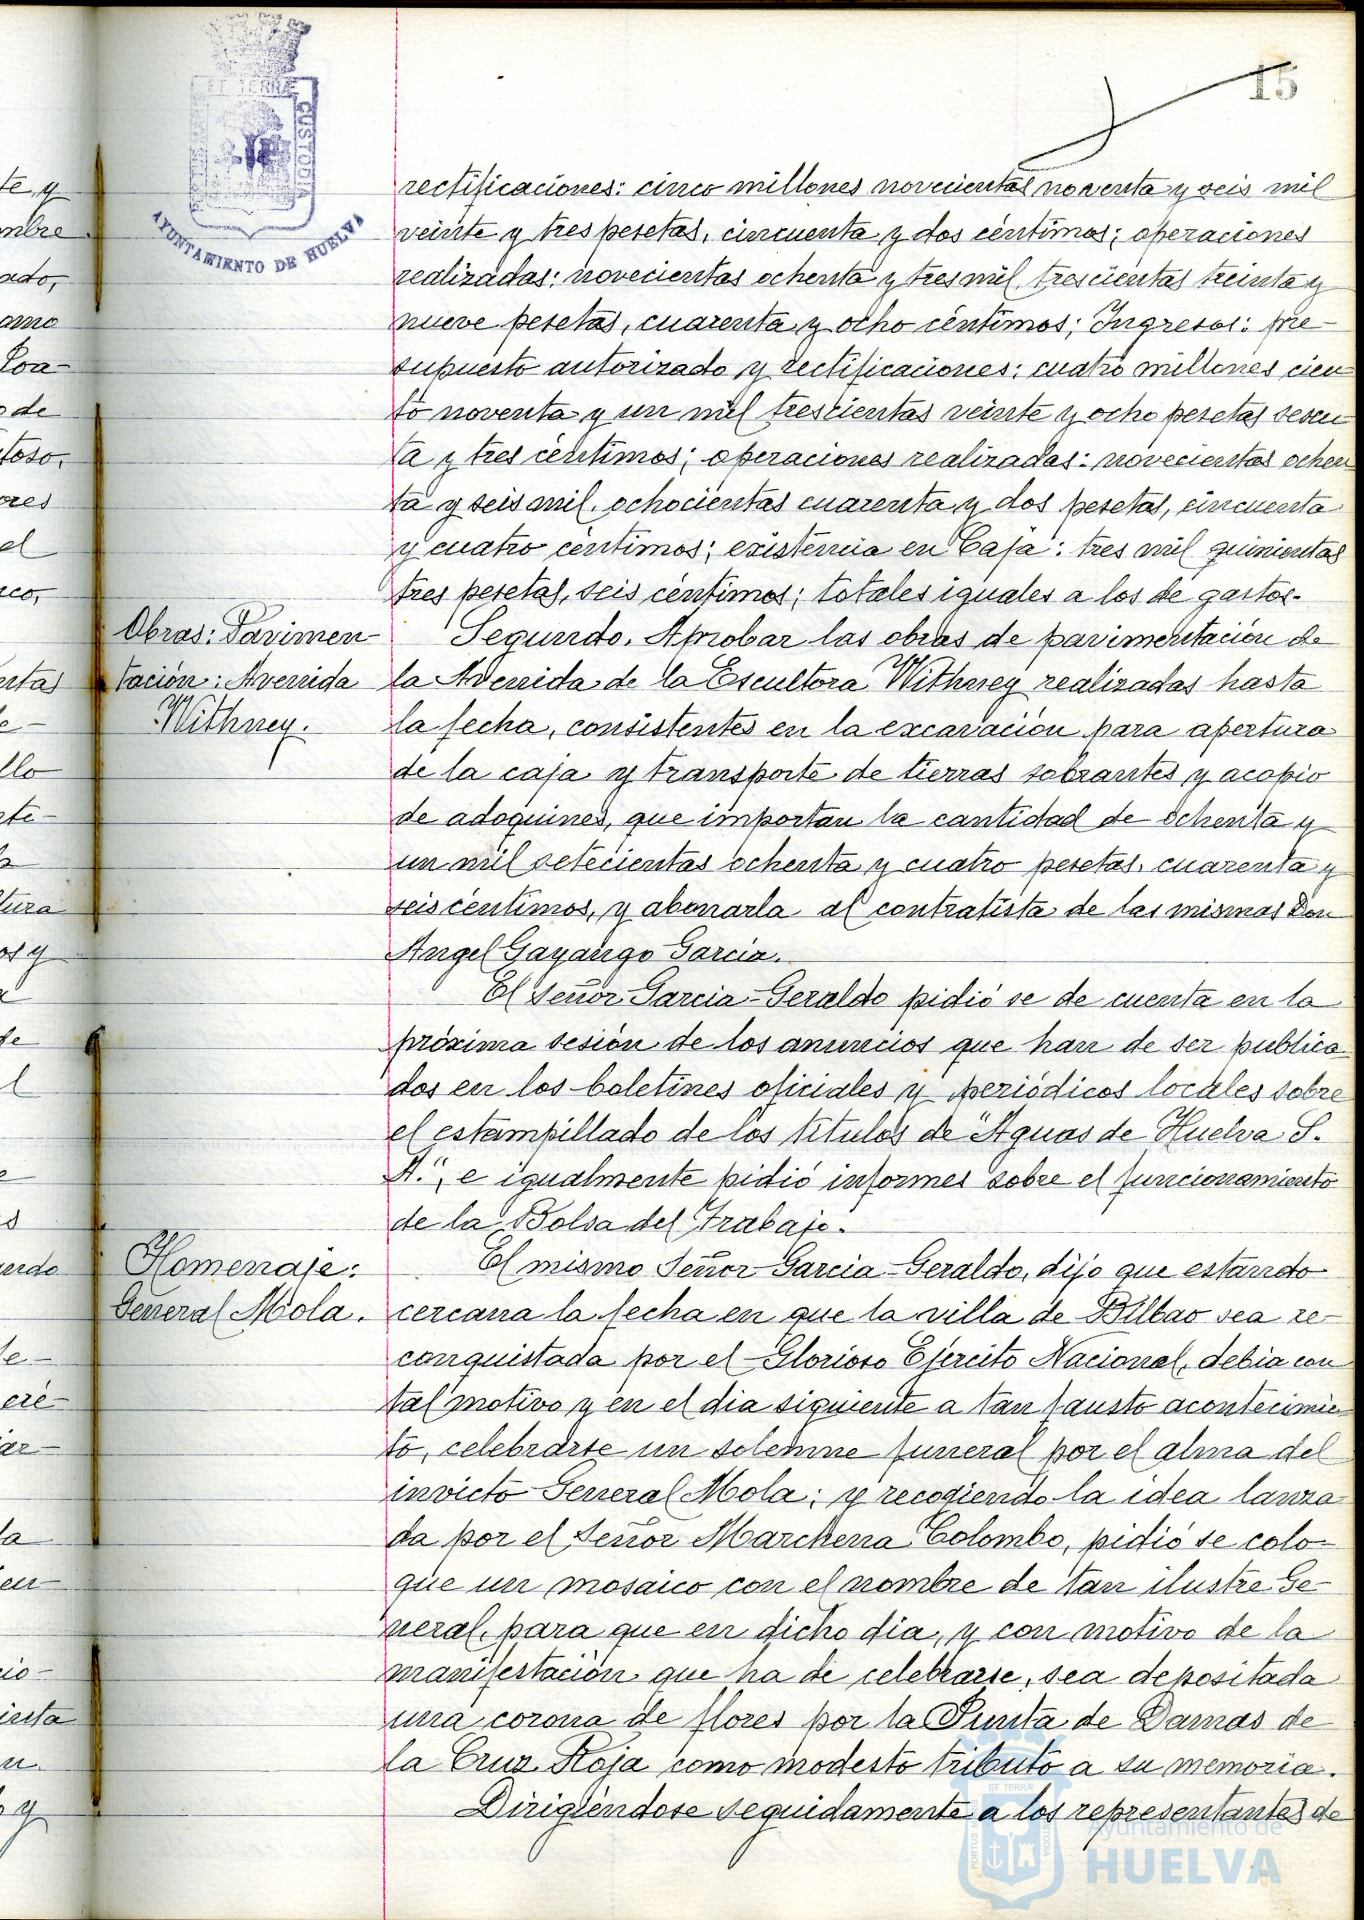 15
ET TERRÆ
CUSTODIA
AYUNTAMIENTO DE HUELVA
rectificaciones: cinco millones novecientas noventa y seis mil
veinte y tres pesetas, cincuenta y dos céntimos; operaciones
realizadas: novecientas ochenta y tres mil, trescientas treinta y
nueve pesetas, cuarenta y ocho céntimos; Ingresos: pre-
supuesto autorizado y rectificaciones: cuatro millones cien
to noventa y un mil trescientas veinte y ocho pesetas sesen
ta y tres céntimos; operaciones realizadas: novecientas ochen
ta y seis mil, ochocientas cuarenta y dos pesetas, cincuenta
y cuatro céntimos; existencia en Caja: tres mil quinientas
tres pesetas, seis céntimos; totales iguales a los de gastos.
Obras: Pavimen-
tación: Avenida
Withney.
Segundo. Aprobar las obras de pavimentación de
la Avenida de la Escultora Withney realizadas hasta
la fecha, consistentes en la excavación para apertura
de la caja y transporte de tierras sobrantes y acopio
de adoquines, que importan la cantidad de ochenta y
un mil setecientas ochenta y cuatro pesetas, cuarenta y
seis céntimos, y abonarla al contratista de las mismas Don
Angel Gayango García.
El Señor Garcia-Geraldo pidió se de cuenta en la
próxima sesión de los anuncios que han de ser publica-
dos en los boletines oficiales y periódicos locales sobre
el estampillado de los títulos de "Aguas de Huelva S.
A.", e igualmente pidió informes sobre el funcionamiento
de la Bolsa del Trabajo.
Homenaje:
General Mola.
El mismo Señor Garcia-Geraldo, dijo que estando
cercana la fecha en que la villa de Bilbao sea re-
conquistada por el Glorioso Ejército Nacional, debia con
tal motivo y en el dia siguiente a tan fausto acontecimien
to, celebrarse un solemne funeral por el alma del
invicto General Mola; y recogiendo la idea lanza-
da por el Señor Marchena Colombo, pidió se colo-
que un mosaico con el nombre de tan ilustre Ge-
neral, para que en dicho dia, y con motivo de la
manifestación que ha de celebrarse, sea depositada
una corona de flores por la Junta de Damas de
la Cruz Roja como modesto tributo a su memoria.
Dirigiéndose seguidamente a los representantes de
Ayuntamiento de
HUELVA